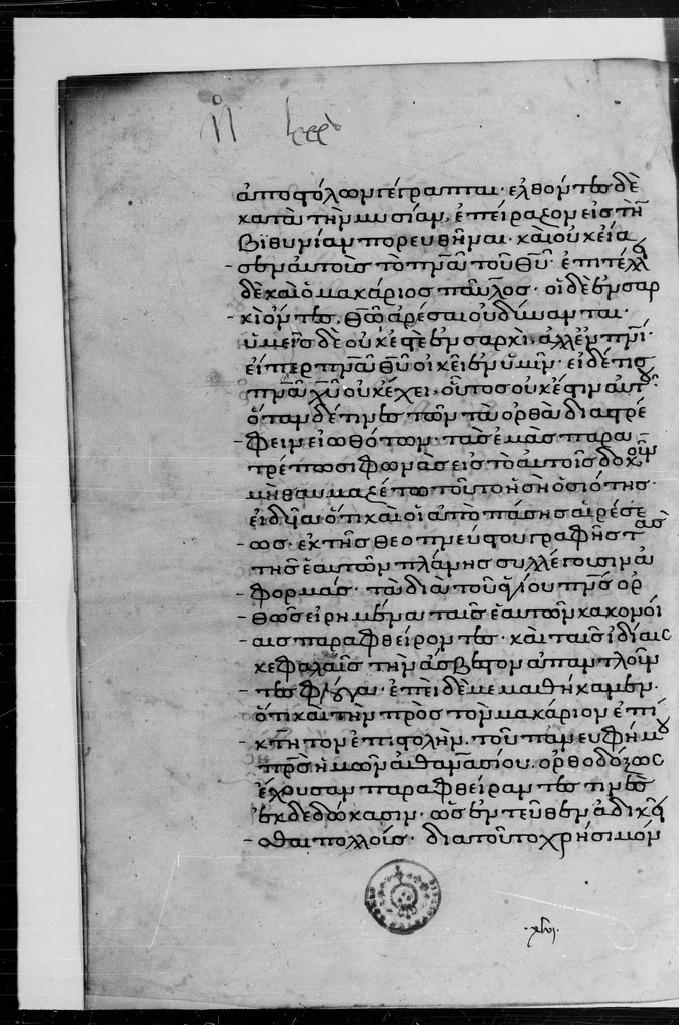 ἀποστόλων γέγραπται· ἐλθόντες δὲ
κατὰ τὴν μυσίαν, ἐπείραζον εἰς τὴν
βϊθυνίαν πορευθῆναι· καὶ οὐκ εἴα
σεν αὐτοὺς τὸ πνᾶ τοῦ θῦ· ἐπιστέλλει
δὲ καὶ ὁ μακάριος παῦλος· οἱ δὲ ἐν σαρ
κὶ ὄντες, θῶ ἀρέσαι οὐ δύνανται·
ὑμεῖς δὲ οὐκ ἐστὲ ἐν σαρκὶ, ἀλλ' ἐν πνι·
εἴπερ πνᾶ θῦ οἰκεῖ ἐν ὑμῖν· εἰ δέ τις
πνᾶ χῦ οὐκ ἔχει· οὗτος οὐκ ἔστιν αὐτοῦ·
ὅταν δέ τινες τῶν τὰ ὀρθὰ διαστρέ
φειν εἰωθότων· τὰς ἐμὰς παρα
τρέπωσι φωνὰς εἰς τὸ αὐτοῖς δοκοῦν
μὴ θαυμαζέτω τοῦτο ἡ σὴ ὁσιότης·
εἰδυῖα ὅτι καὶ οἱ ἀπὸ πάσης αἱρέσε
ως· ἐκ τῆς θεοπνεύστου γραφῆς τὰς
τῆς ἑαυτῶν πλάνης συλλέγουσιν ἀ
φορμάς· τὰ διὰ τοῦ ἁγίου πνς ὀρ
θῶς εἰρημένα ταῖς ἑαυτῶν κακονοί
αις παραφθείροντες· καὶ ταῖς ἰδίαις
κεφαλαῖς τὴν ἄσβεστον ἀπαντλοῦν
τες φλόγα· ἐπεὶ δὲ μεμαθήκαμεν·
ὅτι καὶ τὴν πρὸς τὸν μακάριον ἐπί
κτητον ἐπιστολὴν, τοῦ πανευφήμου
πρς ἡμῶν ἀθανασίου, ὀρθοδόξως
ἔχουσαν παραφθείραντες τινὲς
ἐκδεδώκασιν· ὡς ἐντεῦθεν ἀδικεῖ
σθαι πολλούς· διὰ τοῦτο χρήσιμον